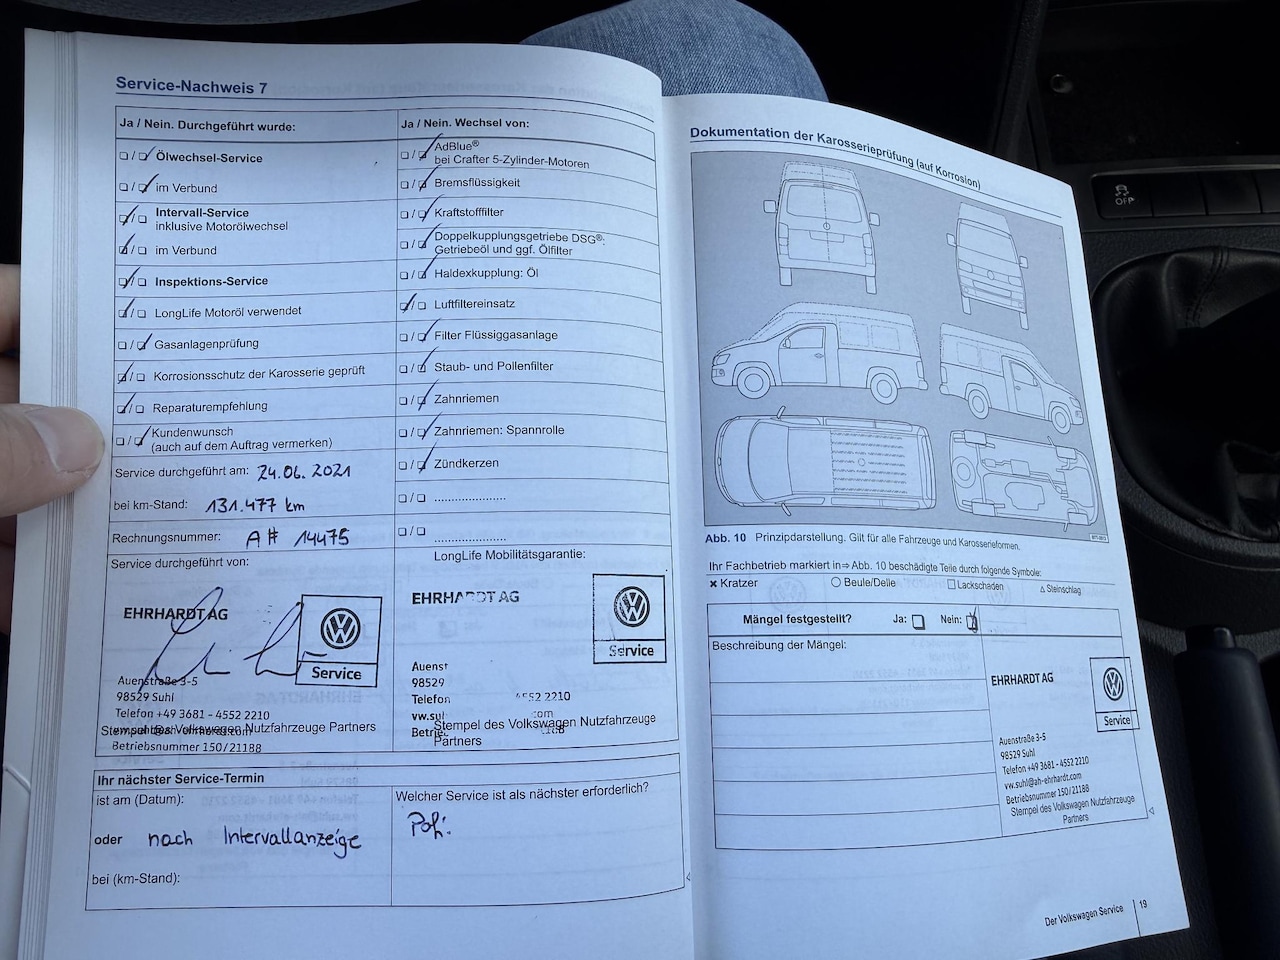 Service-Nachweis 7
Ja / Nein. Durchgeführt wurde:
Ölwechsel-Service
im Verbund
Intervall-Service
inklusive Motorölwechsel
im Verbund
Inspektions-Service
LongLife Motoröl verwendet
Gasanlagenprüfung
Korrosionsschutz der Karosserie geprüft
Reparaturempfehlung
Kundenwunsch
(auch auf dem Auftrag vermerken)
Service durchgeführt am: 24.06.2021
bei km-Stand: 131.477 km
Rechnungsnummer: A# 14475
Service durchgeführt von:
EHRHARDT AG
Service
Auenstraße 3-5
98529 Suhl
Telefon +49 3681 - 4552 2210
Stempel des Volkswagen Nutzfahrzeuge Partners
Betriebsnummer 150/21188
Ja / Nein. Wechsel von:
AdBlue®
bei Crafter 5-Zylinder-Motoren
Bremsflüssigkeit
Kraftstofffilter
Doppelkupplungsgetriebe DSG®:
Getriebeöl und ggf. Ölfilter
Haldexkupplung: Öl
Luftfiltereinsatz
Filter Flüssiggasanlage
Staub- und Pollenfilter
Zahnriemen
Zahnriemen: Spannrolle
Zündkerzen
LongLife Mobilitätsgarantie:
EHRHARDT AG
Service
Auenst
98529
Telefon 4552 2210
vw.suhl .com
Stempel des Volkswagen Nutzfahrzeuge
Partners
Ihr nächster Service-Termin
ist am (Datum):
oder nach Intervallanzeige
bei (km-Stand):
Welcher Service ist als nächster erforderlich?
Dokumentation der Karosserieprüfung (auf Korrosion)
Abb. 10 Prinzipdarstellung. Gilt für alle Fahrzeuge und Karosserieformen.
Ihr Fachbetrieb markiert in ⇒ Abb. 10 beschädigte Teile durch folgende Symbole:
× Kratzer ○ Beule/Delle □ Lackschaden △ Steinschlag
Mängel festgestellt? Ja: Nein:
Beschreibung der Mängel:
EHRHARDT AG
Service
Auenstraße 3-5
98529 Suhl
Telefon +49 3681 - 4552 2210
vw.suhl@ah-ehrhardt.com
Betriebsnummer 150/21188
Stempel des Volkswagen Nutzfahrzeuge
Partners
Der Volkswagen Service 19
OFF